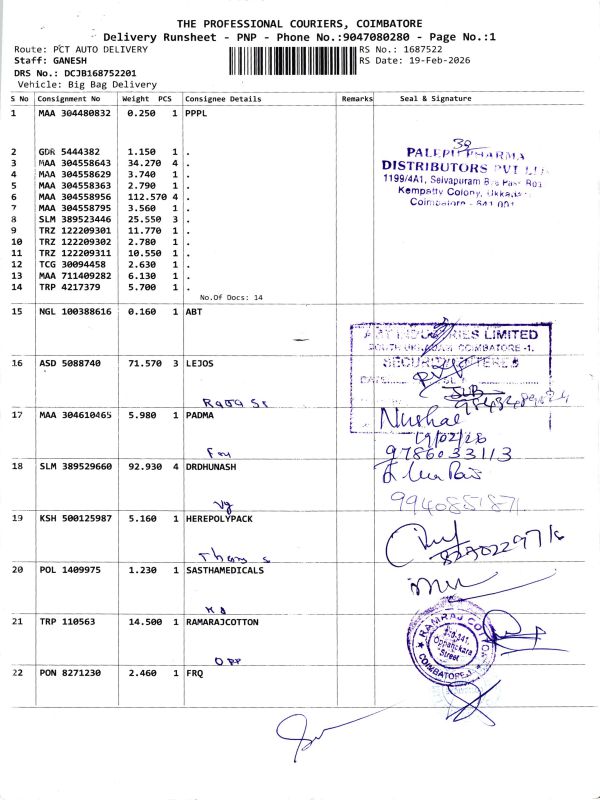 THE PROFESSIONAL COURIERS, COIMBATORE
Delivery Runsheet - PNP - Phone No.:9047080280 - Page No.:1
Route: PCT AUTO DELIVERY
RS No.: 1687522
Staff: GANESH
RS Date: 19-Feb-2026
DRS No.: DCJB168752201
Vehicle: Big Bag Delivery
S No Consignment No Weight PCS Consignee Details Remarks Seal & Signature
1 MAA 304480832 0.250 1 PPPL
2 GDR 5444382 1.150 1 .
3 MAA 304558643 34.270 4 .
4 MAA 304558629 3.740 1 .
5 MAA 304558363 2.790 1 .
6 MAA 304558956 112.570 4 .
7 MAA 304558795 3.560 1 .
8 SLM 389523446 25.550 3 .
9 TRZ 122209301 11.770 1 .
10 TRZ 122209302 2.780 1 .
11 TRZ 122209311 10.550 1 .
12 TCG 30094458 2.630 1 .
13 MAA 711409282 6.130 1 .
14 TRP 4217379 5.700 1 .
No.Of Docs: 14
39
PALEPU PHARMA
DISTRIBUTORS PVT LTD
1199/4A1, Selvapuram
Kempatty Colony, Ukkadam
Coimbatore - 641 001
15 NGL 100388616 0.160 1 ABT
INDUSTRIES LIMITED
COIMBATORE -1.
SECURITY
16 ASD 5088740 71.570 3 LEJOS
Raja St
17 MAA 304610465 5.980 1 PADMA
19/02/26
9786033113
18 SLM 389529660 92.930 4 DRDHUNASH
Vg
19 KSH 500125987 5.160 1 HEREPOLYPACK
20 POL 1409975 1.230 1 SASTHAMEDICALS
21 TRP 110563 14.500 1 RAMARAJCOTTON
OPP
RAMRAJ COTTON
Oppanakara
Street
COIMBATORE-1
22 PON 8271230 2.460 1 FRQ